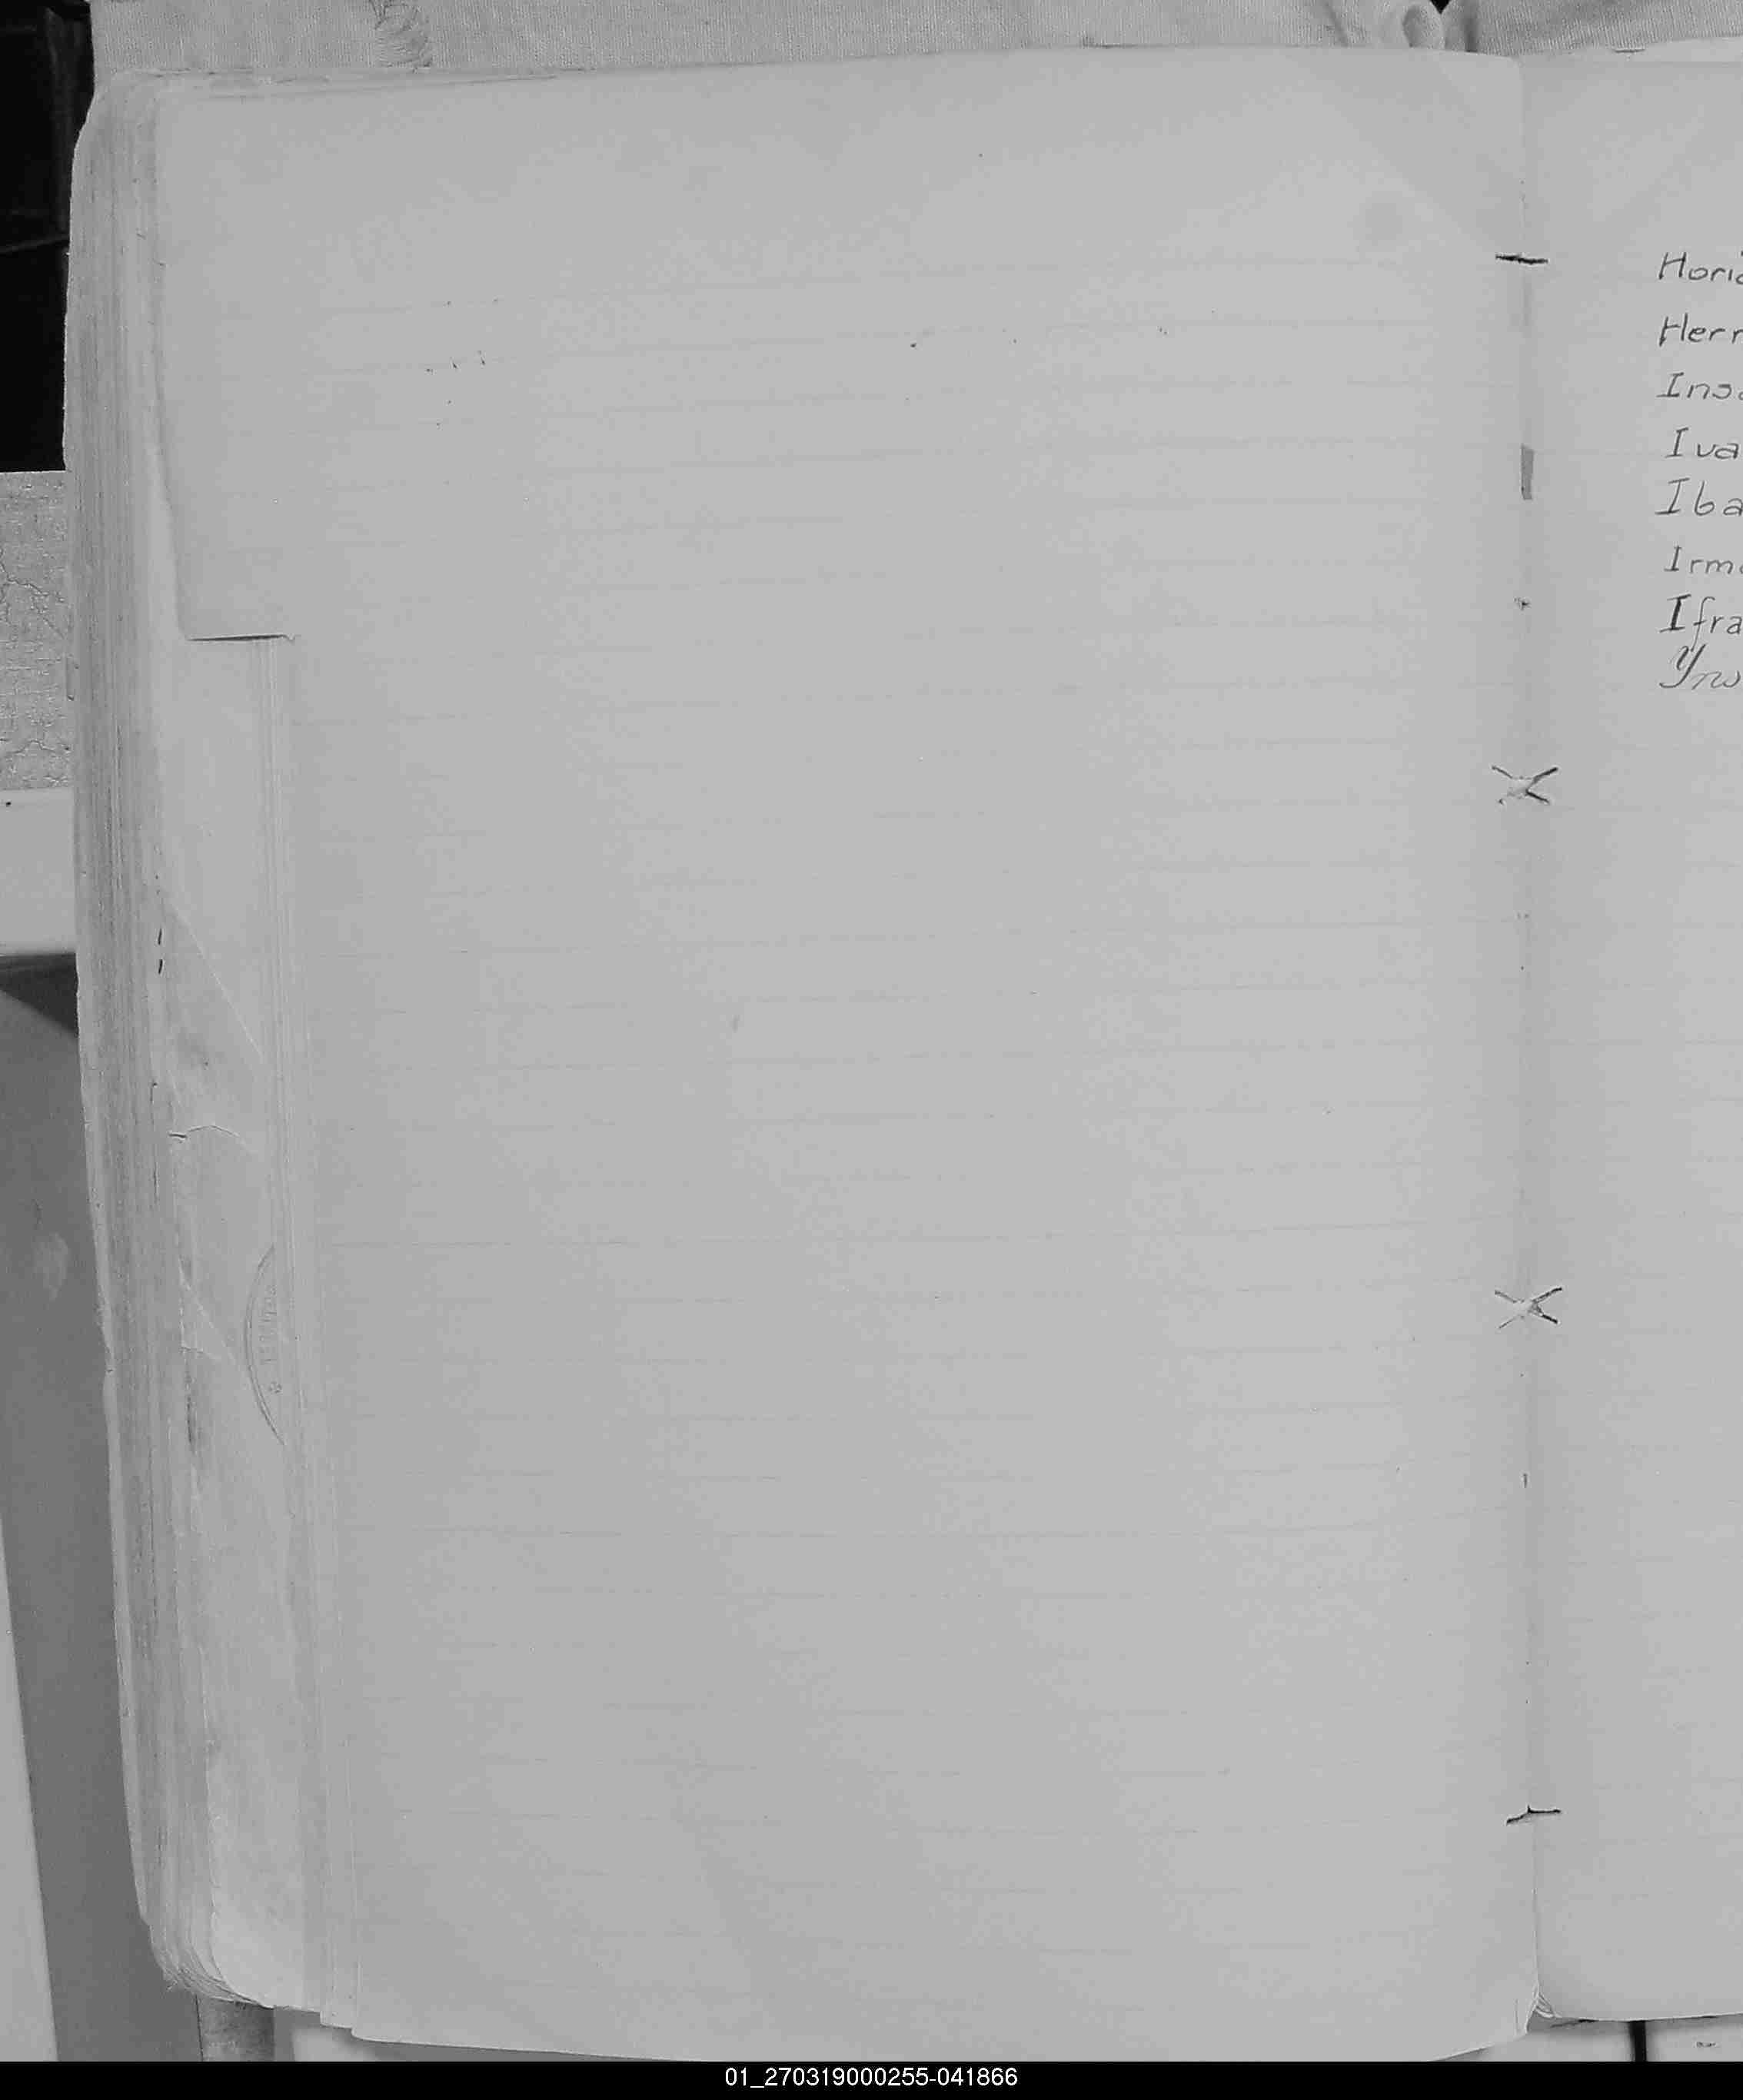 Horia
Herr
Insa
Iva
Iba
Irma
Ifra
Yns
01_270319000255-041866